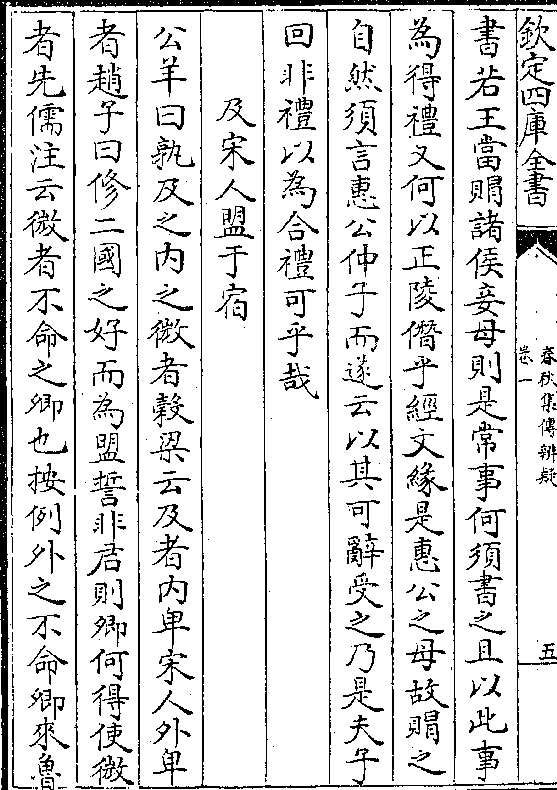 欽定四庫全書
春秋集傳辨疑
卷一
五
書若王當賵諸侯妾母則是常事何須書之且以此事
為得禮又何以正陵僭乎經文緣是惠公之母故賵之
自然須言惠公仲子而遂云以其可辭受之乃是夫子
回非禮以為合禮可乎哉
及宋人盟于宿
公羊曰孰及之内之微者榖梁云及者内卑宋人外卑
者趙子曰修二國之好而為盟誓非君則卿何得使微
者先儒注云微者不命之卿也按例外之不命卿來魯